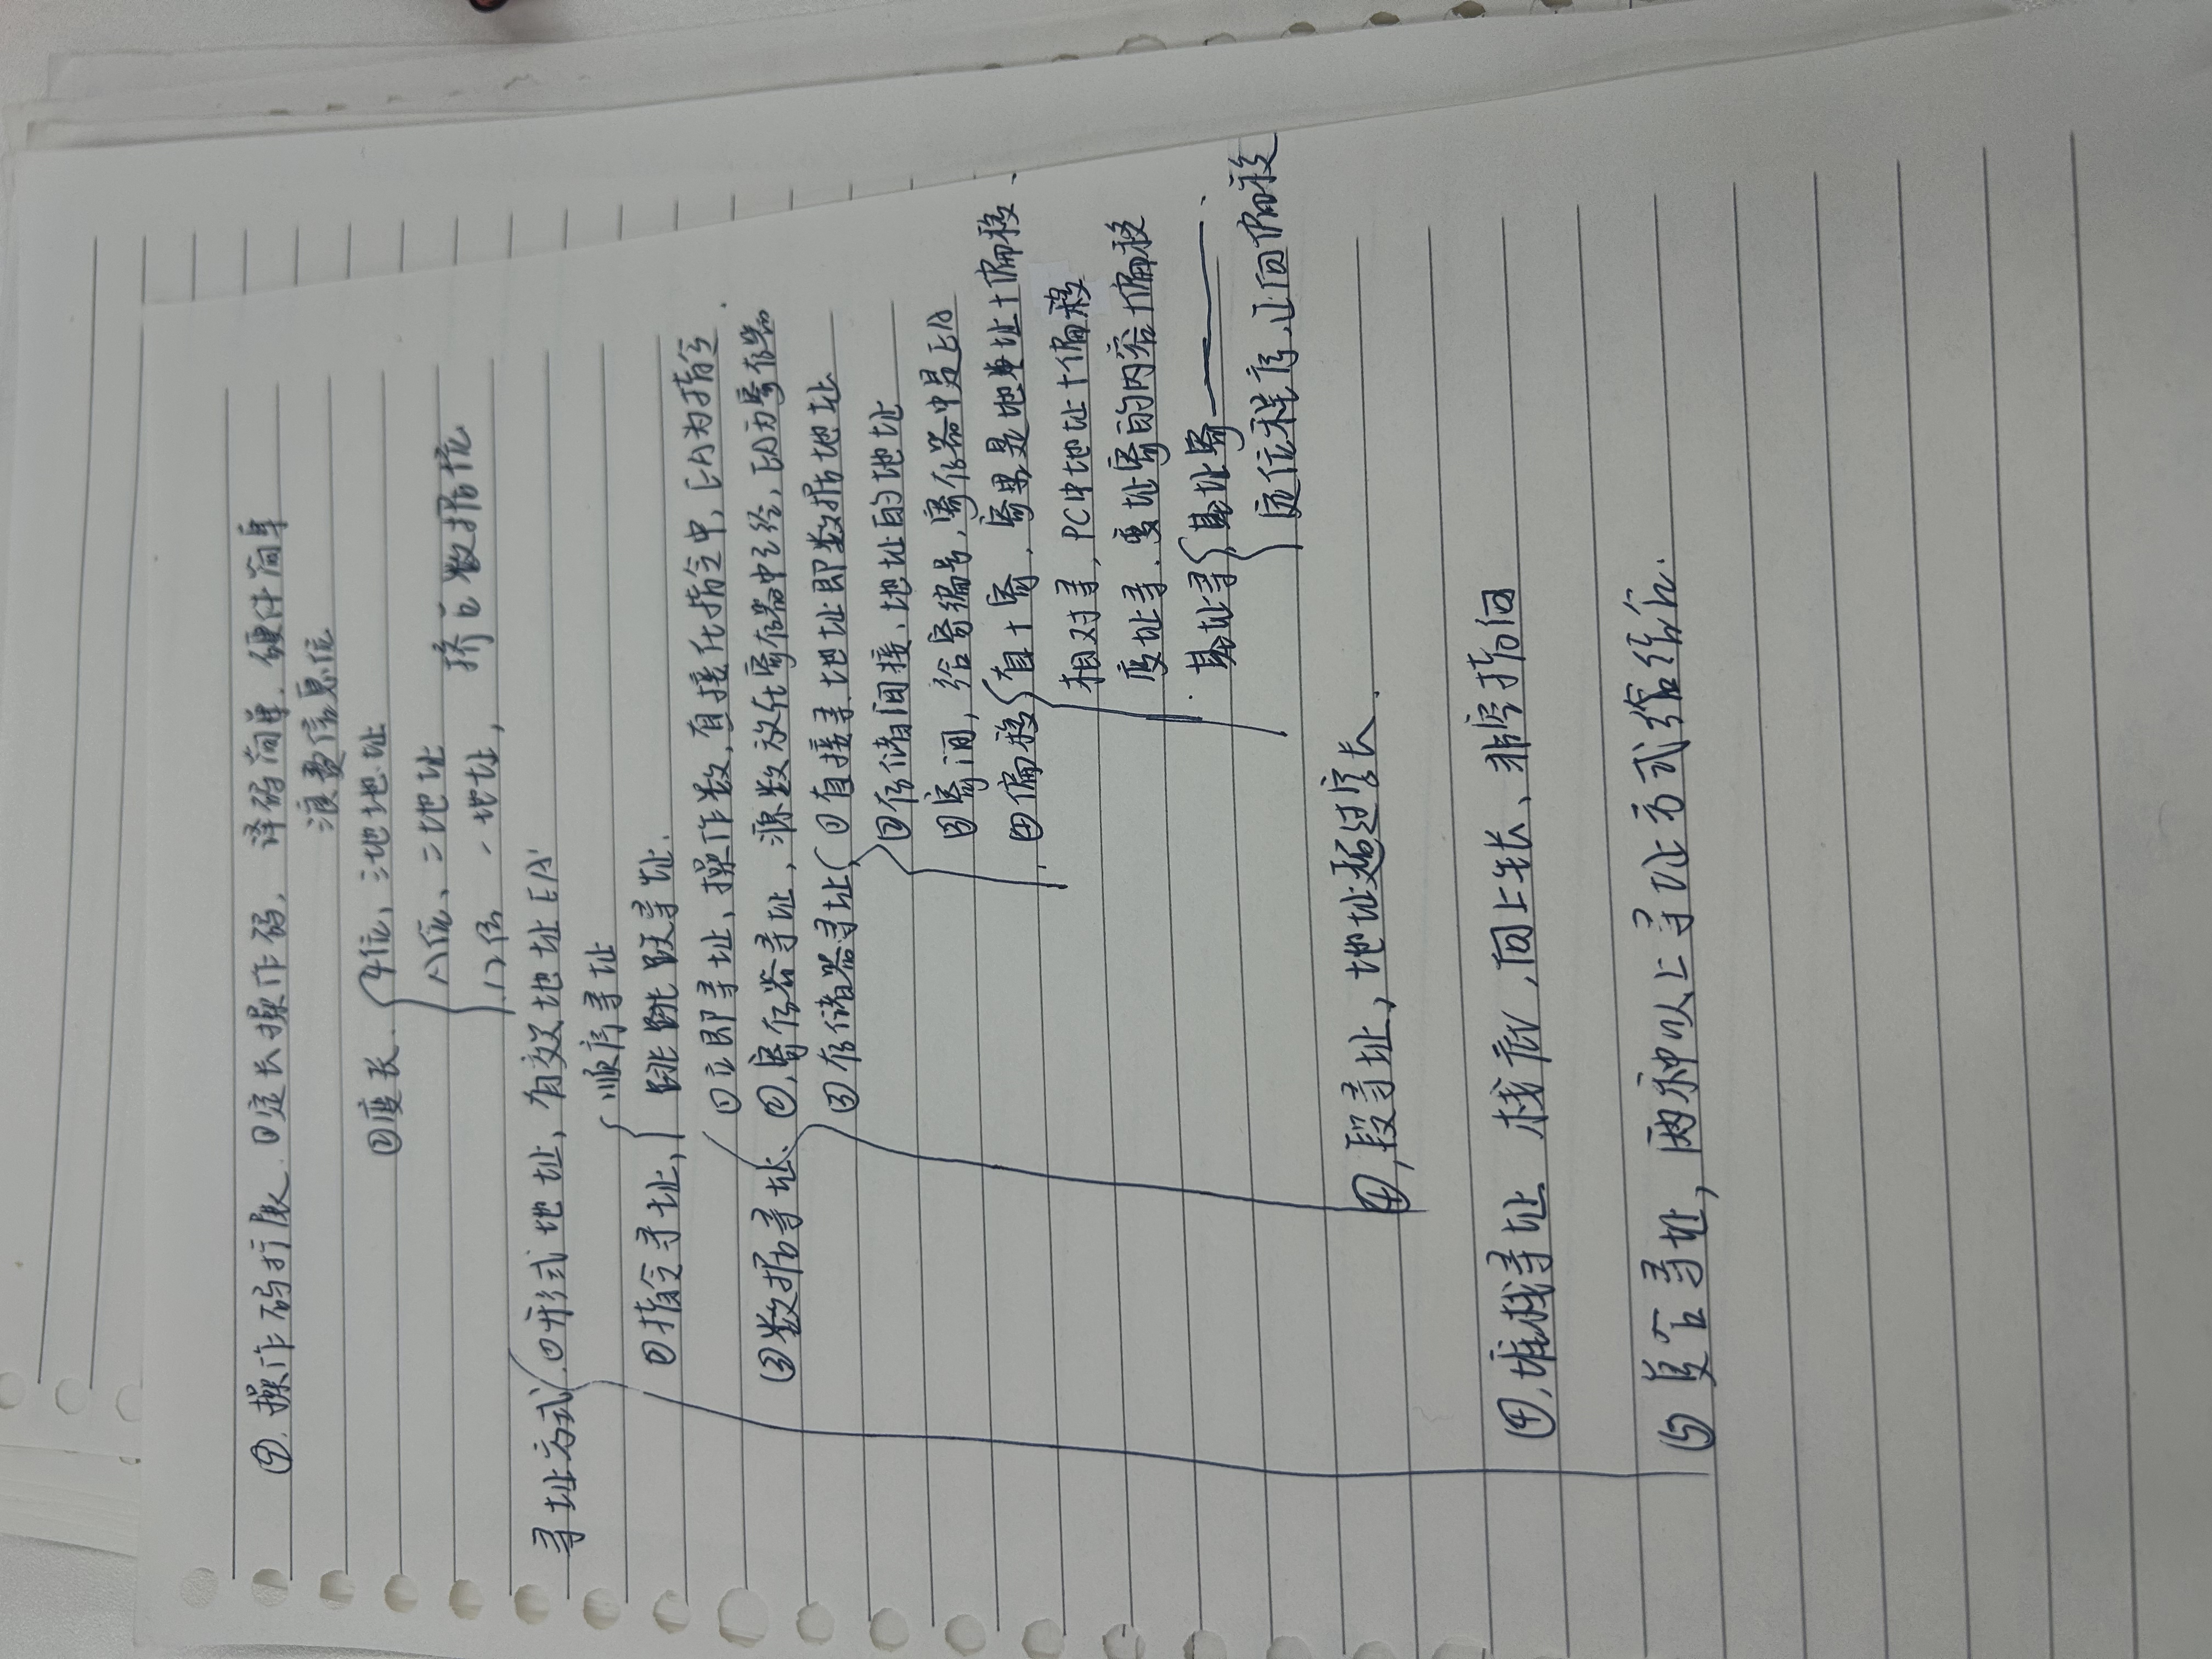 ④.操作码扩展.①定长操作码,译码简单.硬件简单
浪费信息位
②变长.4位,三地址
八位、二地址
12位 一地址,挤占数据位
寻址方式 ①形式地址,有效地址EA
顺序寻址
②指令寻址,跳跳跃寻址.
①立即寻址、操作数,直接在指令中,EA为指令.
③数据寻址.②,寄存器寻址,源数放在寄存器中,EA为寄存器
③存储器寻址 ①直接寻.地址即数据地址
②存储间接、地址的地址
③寄间,给寄编号,寄存器中是EA
④偏移 直+寄.寄里是地址+偏移、
相对寻,PC中地址+偏移
变址寻.变址寄的内容+偏移
基址寻 基址寄———.
定位程序,正向偏移
④,段寻址,地址超过字长.
④,堆栈寻址 栈底,向上生长、非空指向
⑤复合寻址,两种以上寻址方式结合.